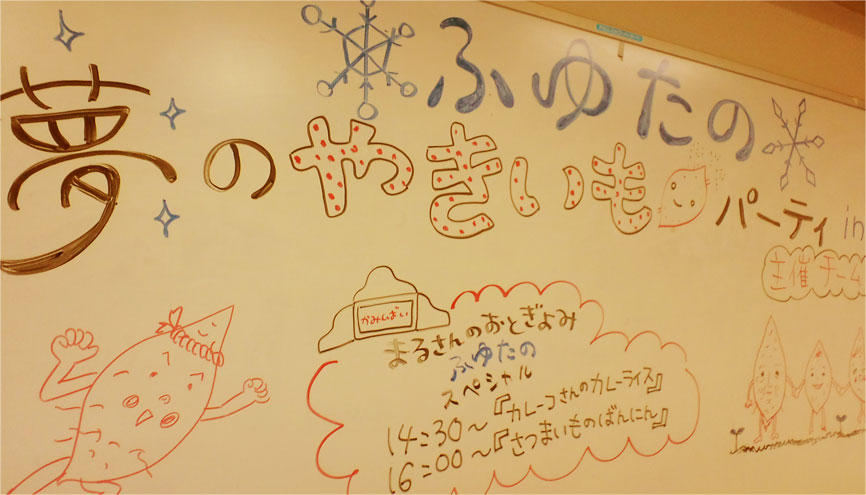 ふゆたの
夢のやきいもパーティ in
主催 チーム
かみしばい
まるさんのおとぎよみ
ふゆたの
スペシャル
14:30~『カレーつさんのカレーライス』
16:00~『さつまいものばんにん』